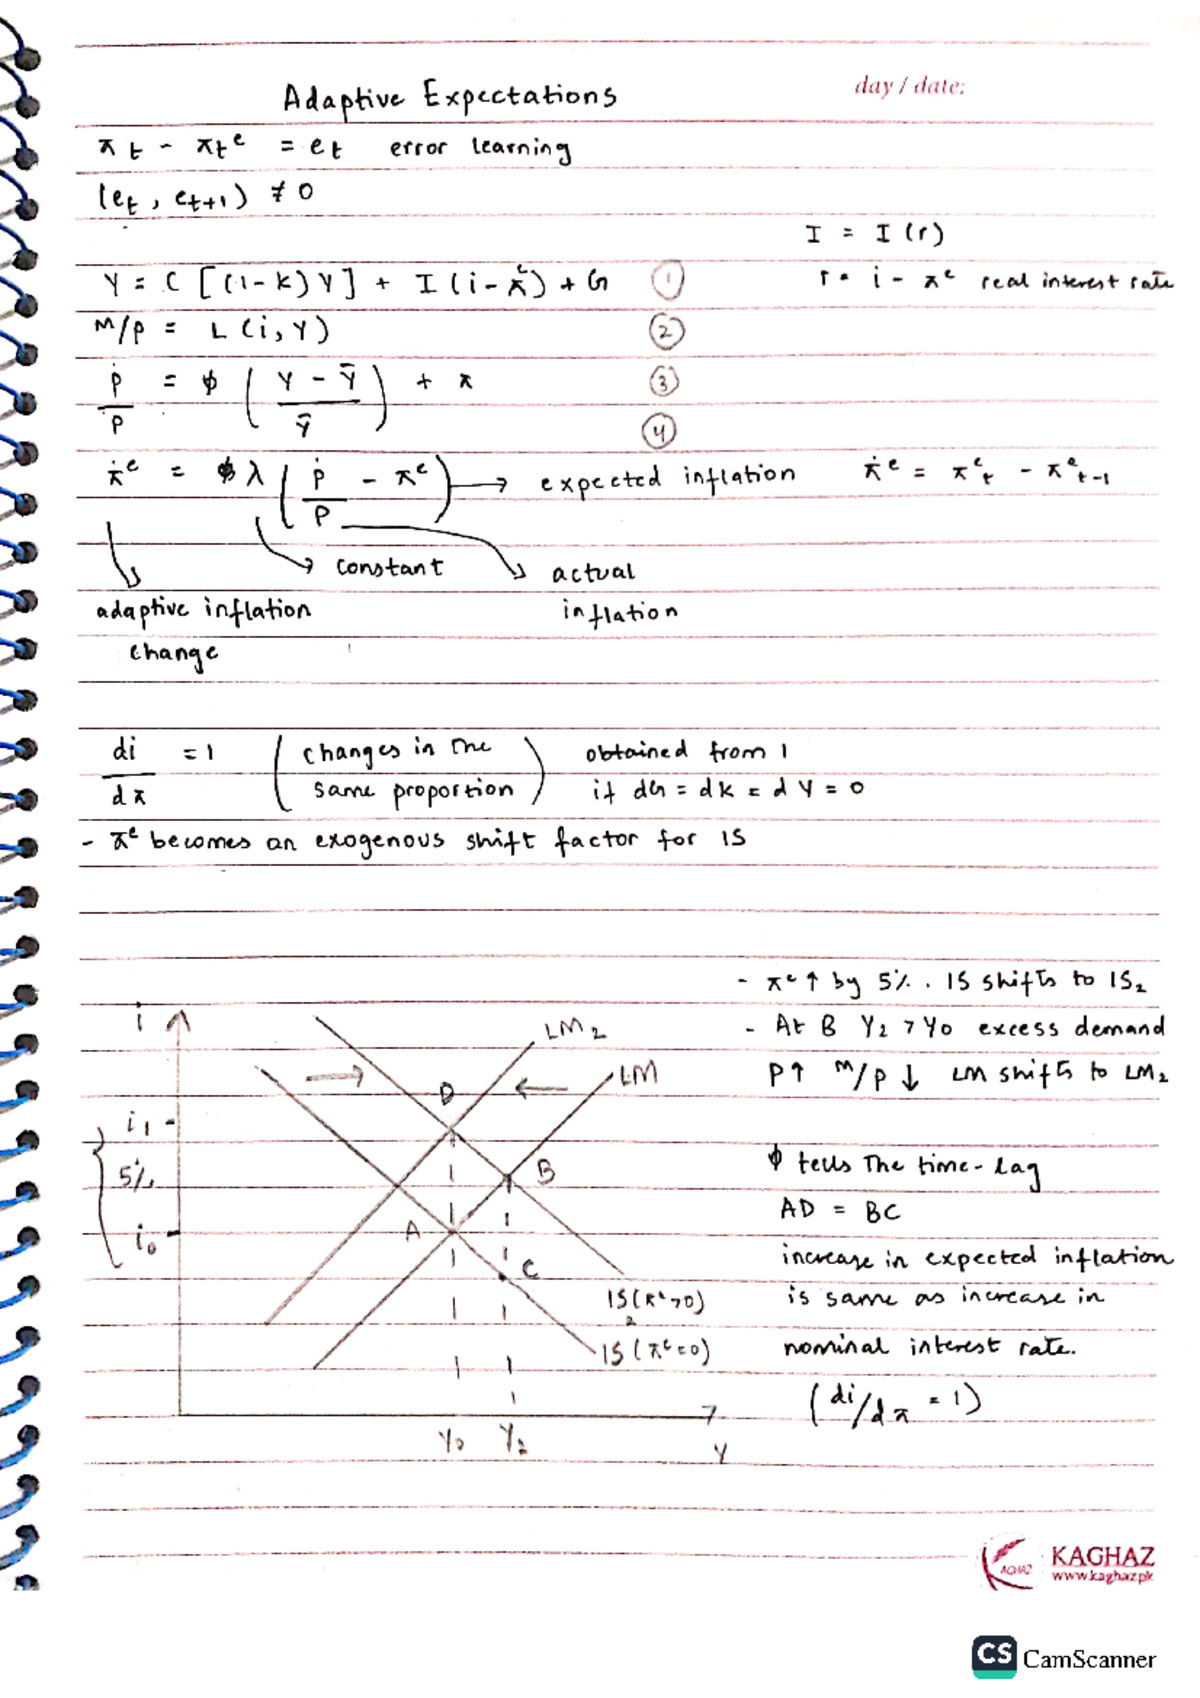 day / date:
Adaptive Expectations
π t - πt e = et error learning
(et, et+1) ≠ 0
I = I (r)
Y = C [(1-k) Y] + I (i - π e) + G ①
r = i - π e real interest rate
M/P = L (i, Y) ②
Ṗ/P = ϕ ( Y - Ȳ / Ȳ ) + π ③
④
π̇ e = λ ( Ṗ/P - π e ) → expected inflation
π̇ e = π e t - π e t-1
constant
actual
inflation
adaptive inflation
change
di/dπ = 1 ( changes in the same proportion ) obtained from 1
if dG = dk = dY = 0
- π e becomes an exogenous shift factor for IS
- π e ↑ by 5%. IS shifts to IS2
- At B Y2 > Y0 excess demand
P↑ M/P ↓ LM shifts to LM2
ϕ tells the time-lag
AD = BC
increase in expected inflation
is same as increase in
nominal interest rate.
(di/dπ = 1)
i
LM2
LM
→
←
D
i1
5%
B
A
i0
C
IS2 (π e > 0)
IS (π e = 0)
Y0 Y2
Y
AGHAZ
KAGHAZ
www.kaghaz.pk
CS CamScanner